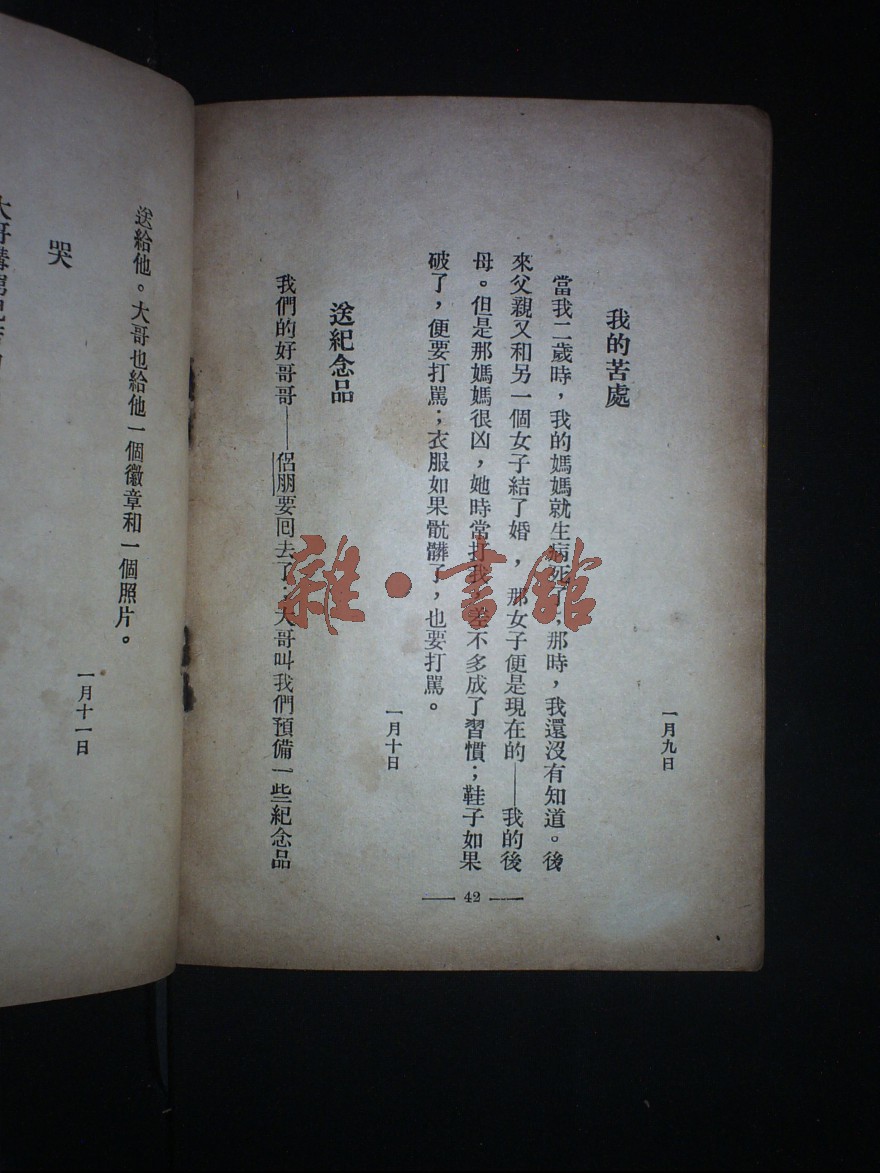 一月九日
我的苦處
當我二歲時，我的媽媽就生病死了，那時，我還沒有知道。後
來父親又和另一個女子結了婚，那女子便是現在的——我的後
母。但是那媽媽很凶，她時常打我，差不多成了習慣；鞋子如果
破了，便要打罵；衣服如果骯髒了，也要打罵。
一月十日
送紀念品
我們的好哥哥——侶朋要囘去了，大哥叫我們預備一些紀念品
— 42 —
送給他。大哥也給他一個徽章和一個照片。
一月十一日
哭
雜·書館